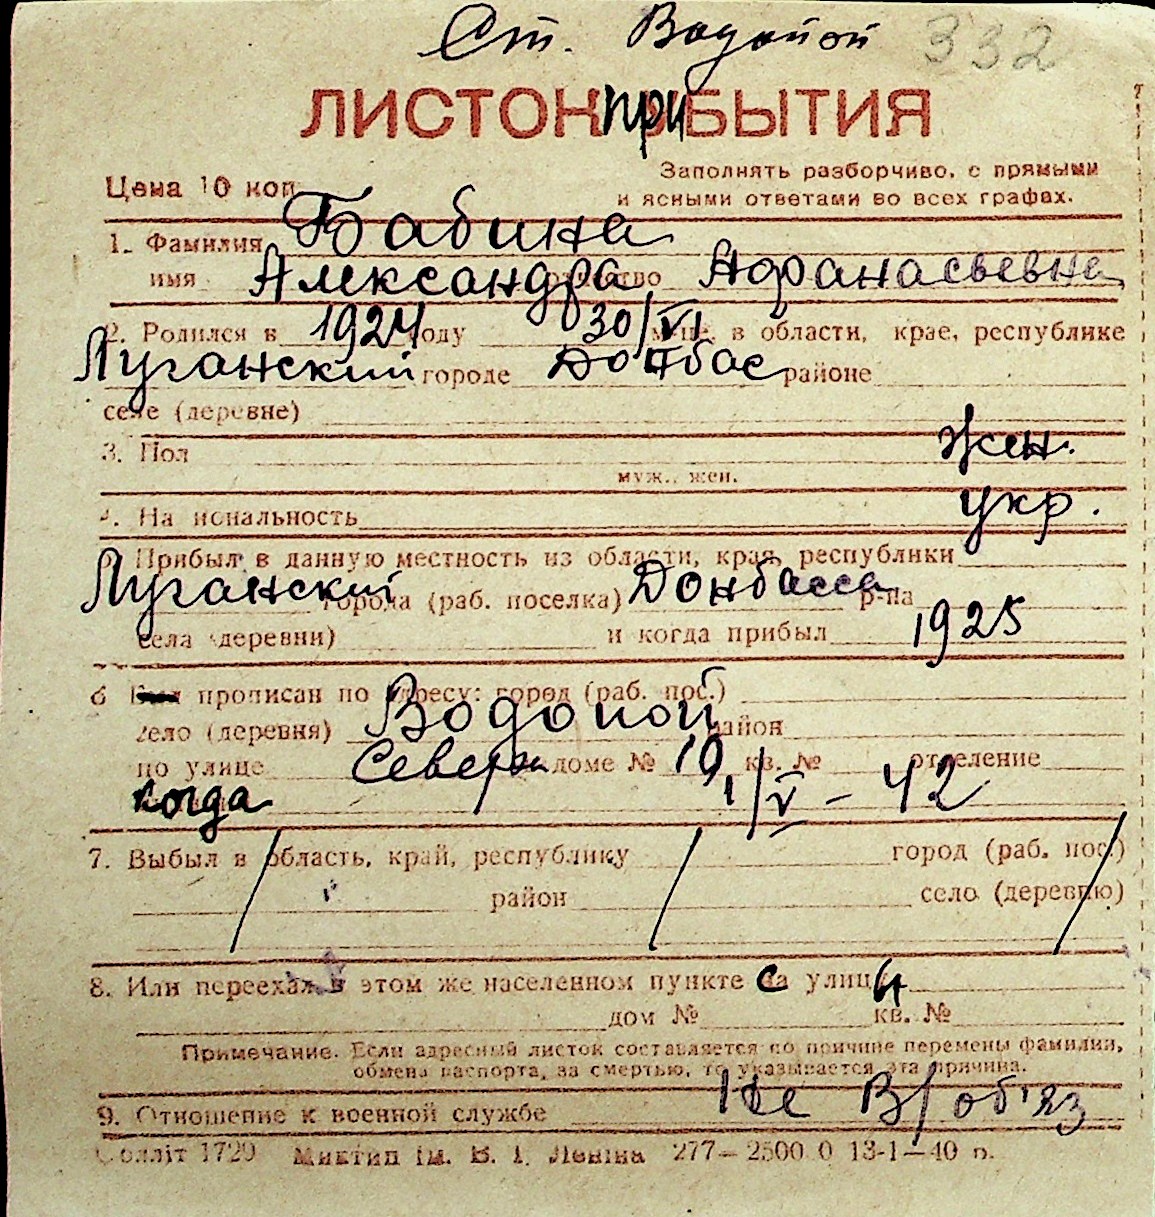 Ст. Водопой 332
ЛИСТОК ПРИБЫТИЯ
Заполнять разборчиво, с прямыми
Цена 10 коп. и ясными ответами во всех графах.
1. Фамилия Бабина
имя Александра отчество Афанасьевна
2. Родился в 1924 году 30/VI м-це, в области, крае, республике
Луганский городе Донбас районе
селе (деревне)
3. Пол жен.
муж., жен.
4. Национальность укр.
5. Прибыл в данную местность из области, края, республики
Луганский города (раб. поселка) Донбасса р-на
села (деревни) и когда прибыл 1925
6 прописан по адресу: город (раб. пос.)
село (деревня) Водопой район
по улице Северн доме № 10 кв. № отделение
когда 1/V – 42
7. Выбыл в область, край, республику город (раб. пос.)
район село (деревню)
8. Или переехал в этом же населенном пункте с улицы
дом № кв. №
Примечание. Если адресный листок составляется по причине перемены фамилии,
обмена паспорта, за смертью, то указывается эта причина.
9. Отношение к военной службе Не В/об'яз
Облліт 1720 Миктип ім. В. І. Леніна 277–2500 0 13-1–40 р.